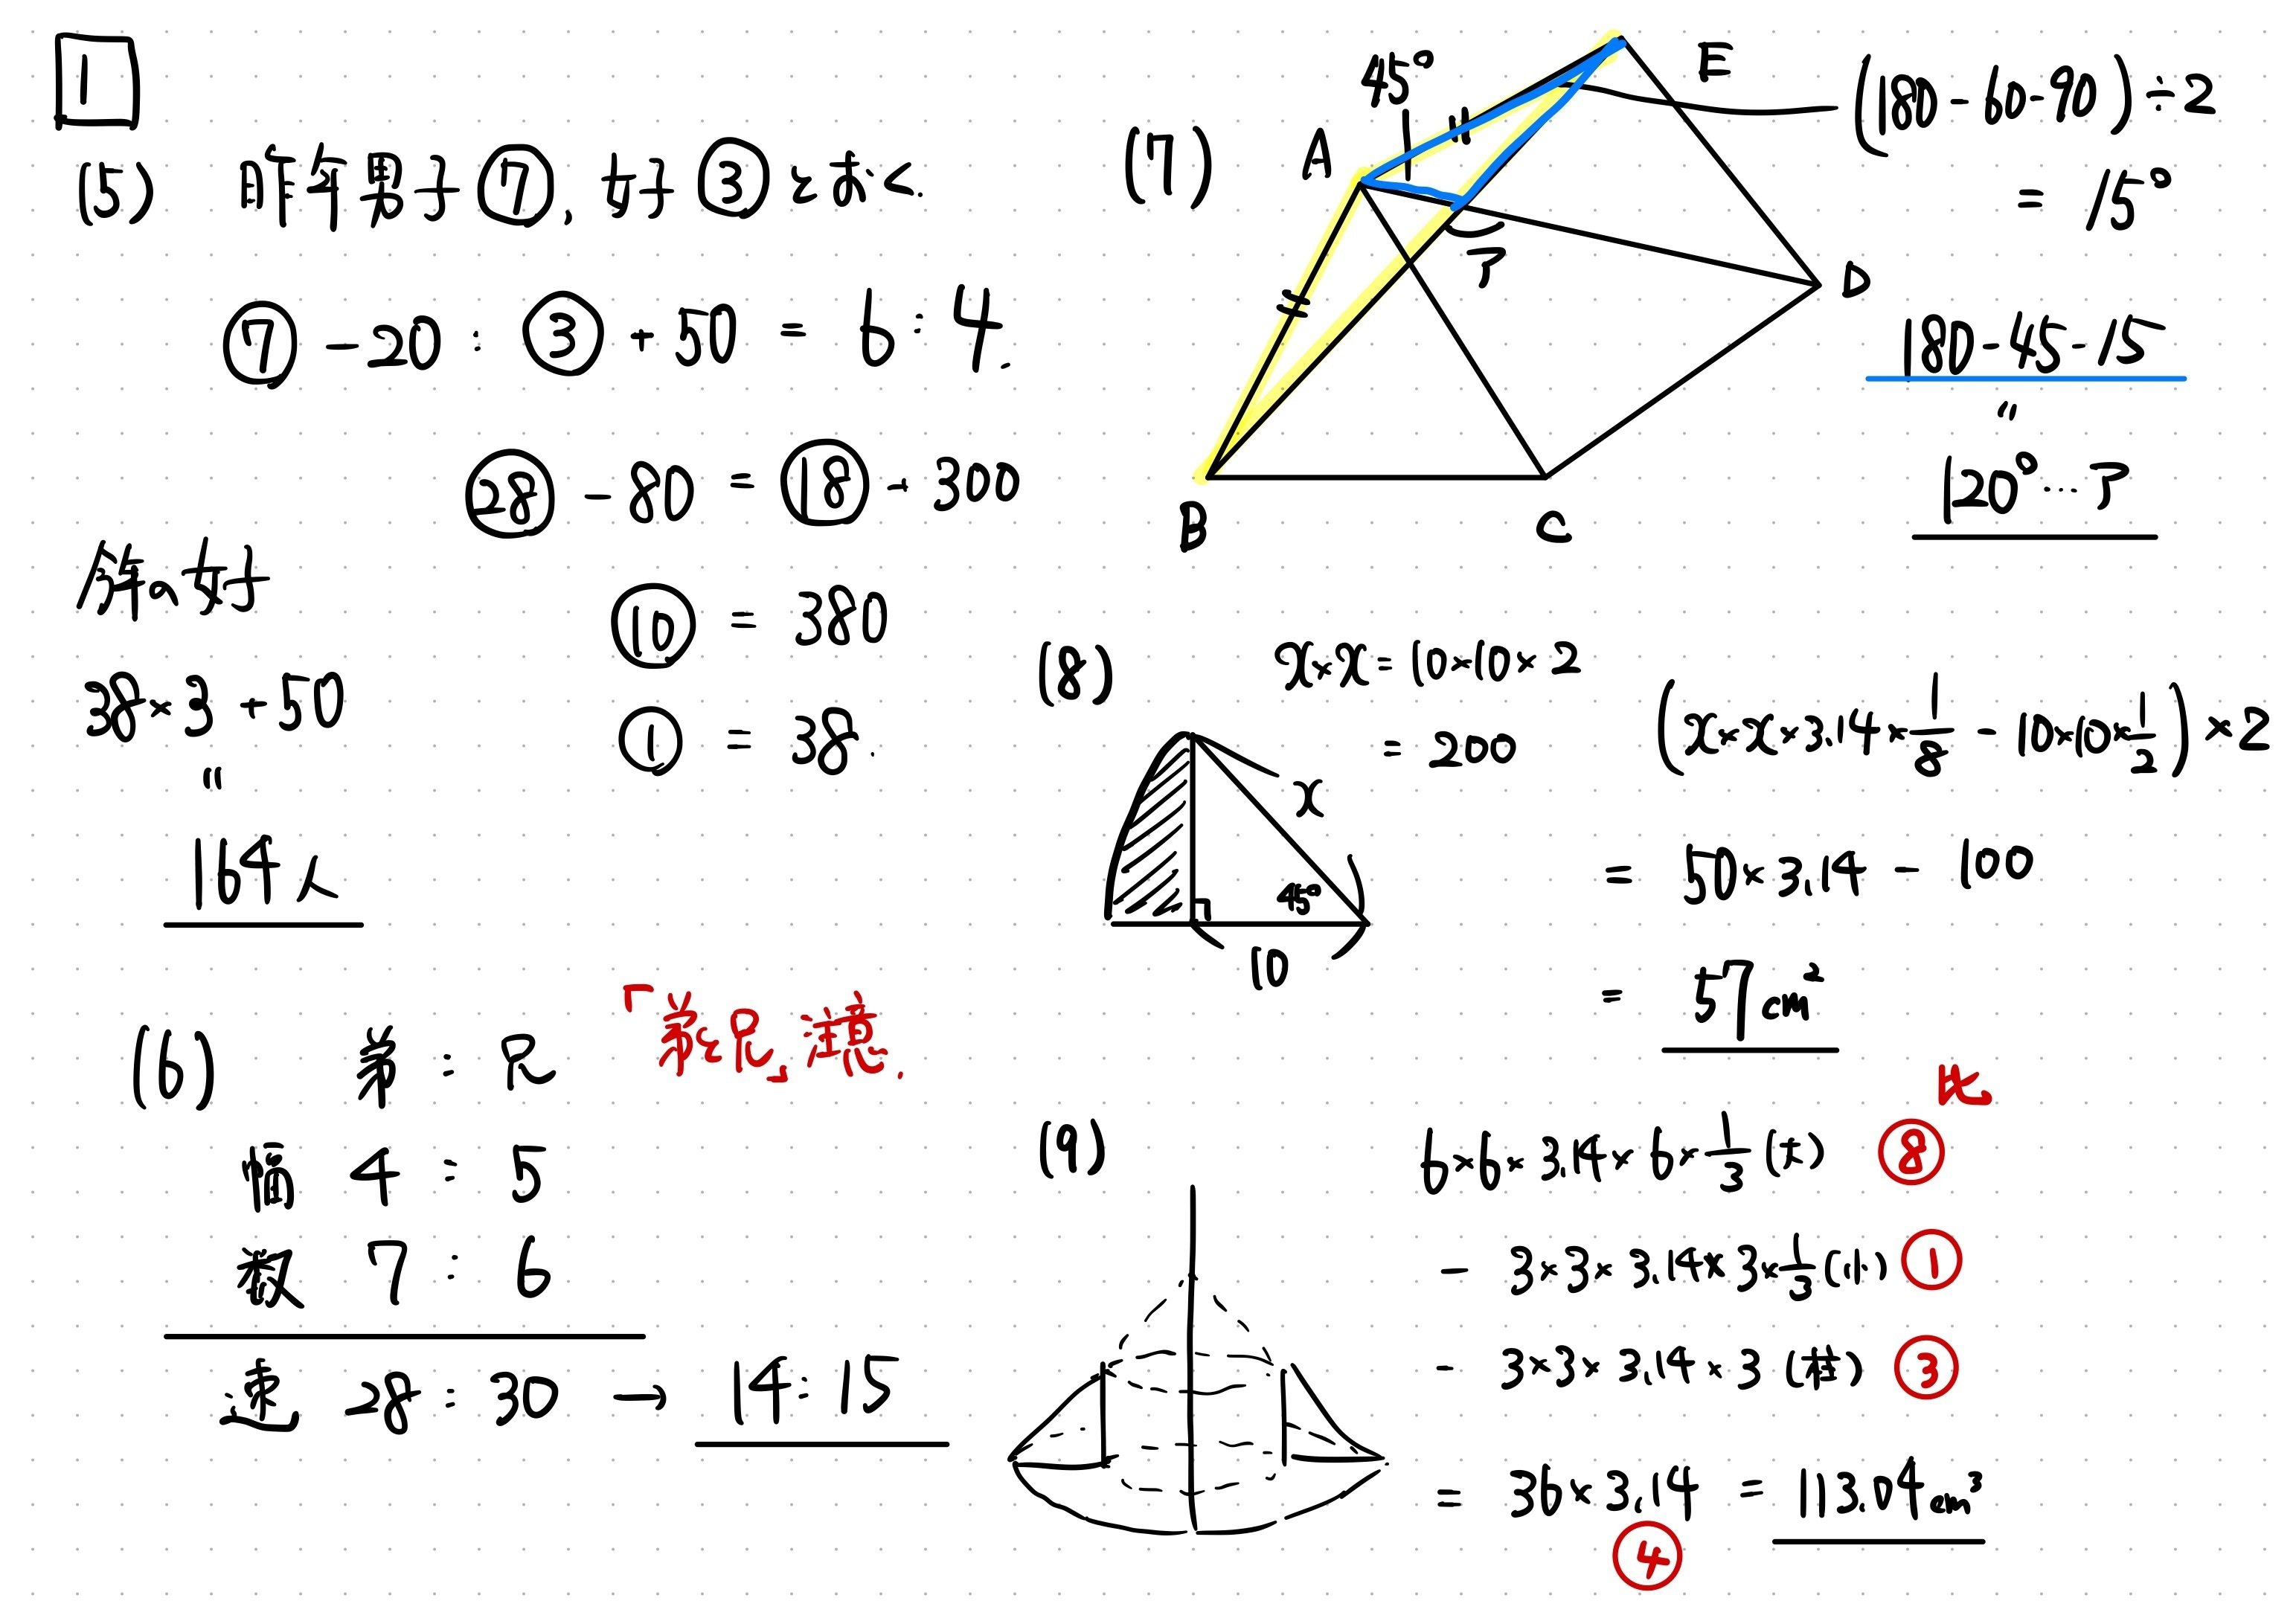 1
(5) 昨年男子⑦, 女子③とおく.
⑦ - 20 : ③ + 50 = 6 : 4.
㉘ - 80 = ⑱ + 300
⑩ = 380
① = 38.
今年の女子
38×3+50
〃
164人
(6) 弟 : 兄 「弟と兄」注意.
幅 4 : 5
数 7 : 6
速 28 : 30 → 14 : 15
(7)
45°
A
E
ア
D
B
C
(180-60-90)÷2
= 15°
180-45-15
〃
120°…ア
(8)
x×x=10×10×2
= 200
x
45°
10
(x×x×3.14×1/8 - 10×10×1/2)×2
= 50×3.14 - 100
= 57cm²
(9)
比
6×6×3.14×6×1/3 (大) ⑧
- 3×3×3.14×3×1/3 (小) ①
- 3×3×3.14×3 (柱) ③
= 36×3.14 = 113.04cm³
④